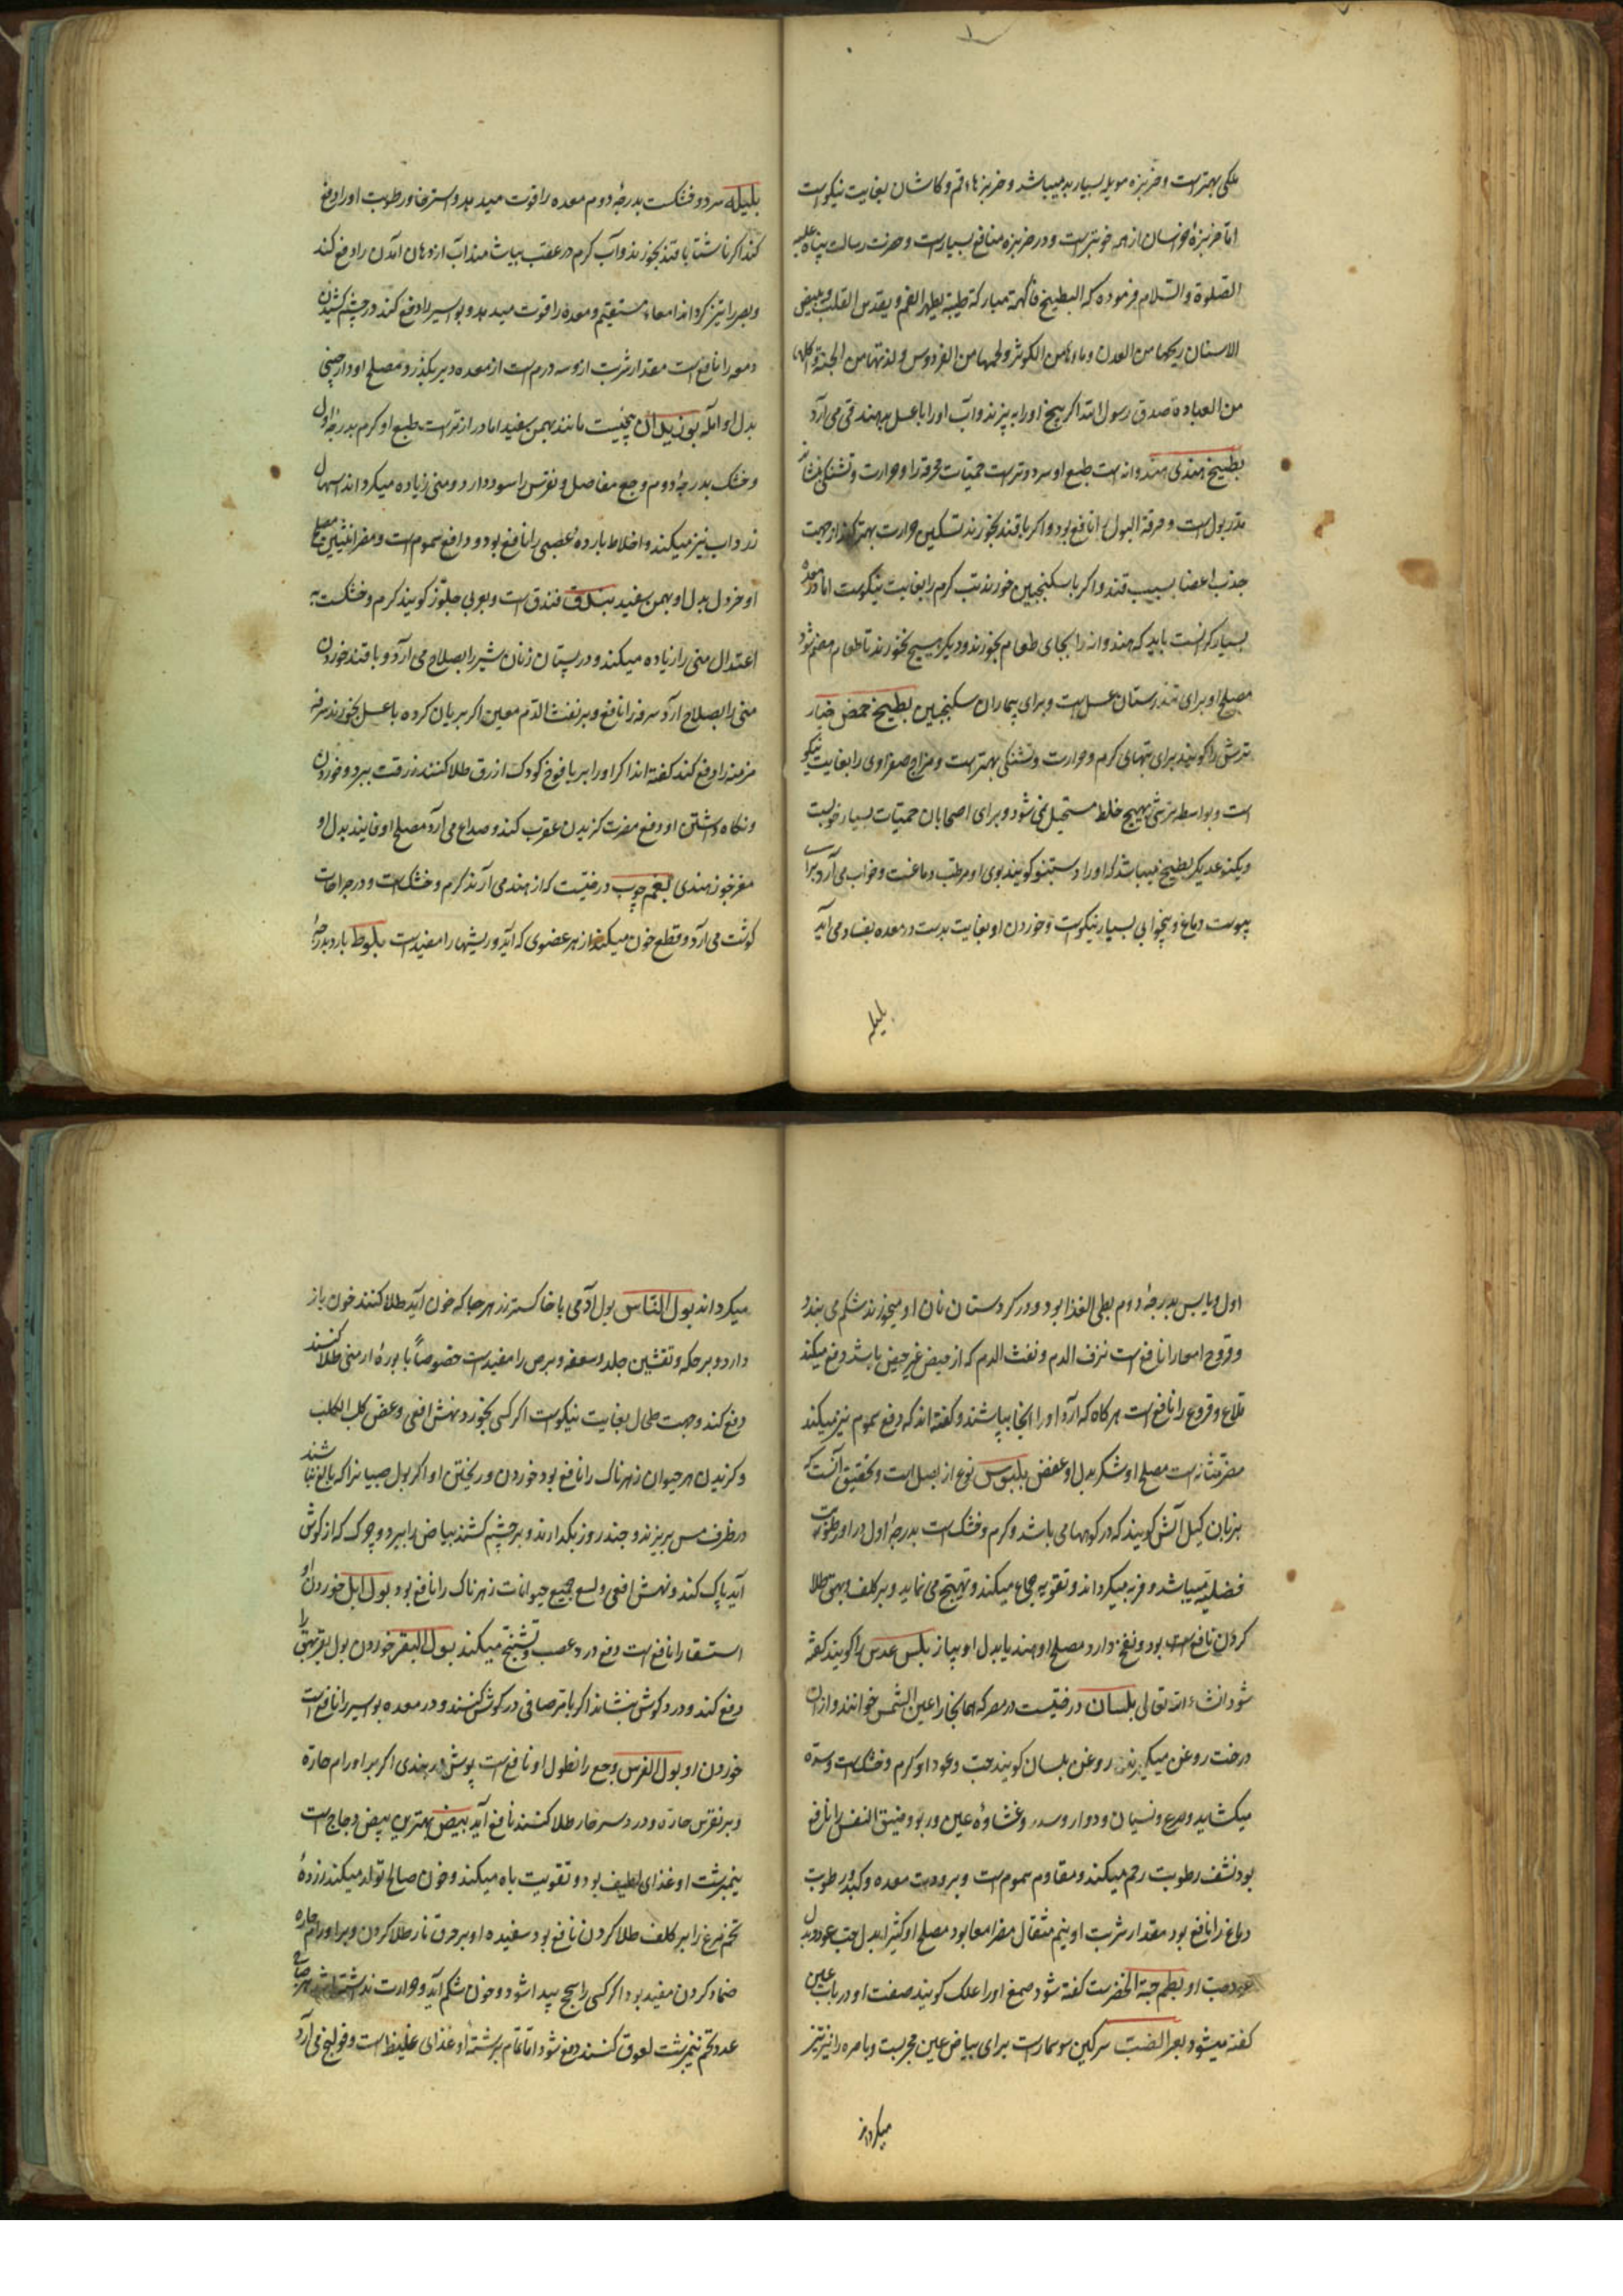 ملکی بهترست و خربزه مویلد بسیار بد میباشد و خربزهاء قم و کاشان بغایت نیکوست
اما خربزهٔ خراسان از همه خوبترست و در خربزه منافع بسیارست و حضرت رسالت پناه علیه
الصلوة والسلام فرموده که البطیخ فاکهة مبارکة طیبة یطهر الفم و یقدس القلب و یبیض
الاسنان ریحها من العدن و ماوها من الکوثر و لحمها من الفردوس و لذتها من الجنة و اکلها
من العبادة صدق رسول الله اکر بیخ او را به پزند و آب او را با عسل بدهند قی می آرد
بطیخ هندی هندوانه است طبع او سرد و ترست حمیات محرقه را و حرارت و تشنکی بنشاند
مدر بولست و حرقة البول را نافع بود و اکر با قند بخورند تسکین حرارت بهتر کند از جهت
جذب اعضا بسبب قند و اکر با سکنجبین خورند تب کرم را بغایت نیکوست اما در معده
بسیار کرانست باید که هندوانه را بجای طعام بخورند و دیکر هیچ نخورند تا طعام هضم شود
مصلح او برای تندرستان عسل است و برای بیماران سکنجبین بطیخ حمض خیار
ترش را کویند برای تبهای کرم و حرارت و تشنکی بهترست و مزاج صفراوی را بغایت نیکو
است و بواسطه ترشی بهیچ خلط مستحیل نمی شود و برای اصحابان حمیات بسیار خوبست
و یکنوع دیکر بطیخ میباشد که او را دستنبو کویند بوی او مرطب دماغست و خواب می آرد برای
یبوست دماغ و بیخوابی بسیار نیکوست و خوردن او بغایت بدست در معده بفساد می آید
بلیله
بلیله سرد و خشکست بدرجهٔ دوم معده را قوت میدهد و استرخا و رطوبت او را دفع
کند اکر ناشتا با قند بخورند و آب کرم در عقب بیاشامند آب از دهان آمدن را دفع کند
و بصر را تیز کرداند امعاء مستقیم و معده را قوت میدهد و بواسیر را دفع کند در چشم کشیدن
دمعه را نافع است مقدار شربت ازو سه درم است از معده دیر بکذرد مصلح او دارچینی
بدل او آمله بوزیدان بیخیست مانند بهمن سفید اما درازترست طبع او کرم بدرجهٔ اول
و خشک بدرجهٔ دوم وجع مفاصل و نقرس را سود دارد و منی زیاده میکرداند اسهال
زرداب نیز میکند و اخلاط باردهٔ عصبی را نافع بود و دافع سموم است و مضر انثیین مصلح
او خردل بدل او بهمن سفید بندق فندق است و بعربی جلوز کویند کرم و خشکست به
اعتدال منی را زیاده میکند و در پستان زنان شیر را بصلاح می آرد و با قند خوردن
منی را بصلاح آرد سرفه را نافع و بر نفث الدم معین اکر بریان کرده با عسل بخورند سرفه
مزمنه را دفع کند کفته اند اکر او را بر یافوخ کودک ازرق طلا کنند زرقت ببرد و خوردن
و نکاه داشتن او دفع مضرت کزیدن عقرب کند و صداع می آرد مصلح او فانیذ بدل او
مغز جوز هندی بقم چوب درختیست که از هند می آرند کرم و خشک است و در جراحات
کوشت می آرد و قطع خون میکند از هر عضوی که آید و ریشها را مفید است بلوط بارد بدرجهٔ
اول و یابس بدرجهٔ دوم بطی الغذا بود و در کردستان نان او میخورند شکم می بندد
و قروح امعا را نافع است نزف الدم و نفث الدم که از حیض غیر حیض باشد دفع میکند
قلاع و قروع را نافع است هرکاه که آرد او را آنجا بپاشند و کفته اند که دفع سموم نیز میکند
مضر مثانه است مصلح او شکر بدل او عفص بلبوس نوع از بصل است و تحقیق آنست که
بزبان کیل آتش کویند که در کوهها می باشد و کرم و خشک است بدرجهٔ اول در او رطوبت
فضلیه میباشد و فربه میکرداند و تقویه جماع میکند و تهییج می نماید و بر کلف و بهق طلا
کردن نافع است بود و نفخ دارد مصلح او هندبا بدل او پیاز بلس عدس را کویند کفته
شود انشاء الله تعالی بلسان درختیست در مصر که همانجا را عین الشمس خوانند و از آن
درخت روغن میکیرند روغن بلسان کویند حب و عود او کرم و خشک است و سده
میکشاید و صرع و نسیان و دوار و سدر و غشاوهٔ عین و ربو و ضیق النفس را نافع
بود نشف رطوبت رحم میکند و مقاوم سموم است و برودت معده و کبد و رطوبت
دماغ را نافع بود مقدار شربت او نیم مثقال مضر امعا بود مصلح او کثیرا بدل حب عود و بدل
عود حب او بطم حبة الخضرست کفته شود صمغ او را علک کویند صفت او در باب عین
کفته میشود بعر الضب سرکین سوسمارست برای بیاض عین مجربست و باصره را نیز تیز
میکرداند
میکرداند بول الناس بول آدمی با خاکستر رز هر جا که خون آید طلا کنند خون باز
دارد و بر حکه و تقشیر جلد و سعفه و برص را مفیدست خصوصاً با بورهٔ ارمنی طلا کنند
دفع کند و جهت طحال بغایت نیکوست اکر کسی بخورد و نهش افعی و عض کلب الکلب
و کزیدن هر حیوان زهرناک را نافع بود خوردن و ریختن او اکر بول صبیانرا که بالغ نباشند
در ظرف مس بریزند و چند روز بکذارند و بر چشم کشند بیاض را ببرد و چرک که از کوش
آید پاک کند و نهش افعی و لسع جمیع حیوانات زهرناک را نافع بود بول ابل خوردن او
استسقا را نافع است دفع درد عصب و تشنج میکند بول البقر خوردن بول بقر بهق را
دفع کند و درد کوش بنشاند اکر با مر صافی در کوش کنند و در معده بواسیر را نافع است
خوردن او بول الفرس وجع را نطول او نافع است پوش دربندی اکر بر اورام حاره
و بر نقرس حاره و درد سر حار طلا کنند نافع آید بیض بهترین بیض دجاج است
نیمبرشت او غذای لطیف بود و تقویت باه میکند و خون صالح تولد میکند زردهٔ
تخم مرغ را بر کلف طلا کردن نافع بود سفیده او بر حرق نار طلا کردن و بر اورام حاره
ضماد کردن مفید بود اکر کسی را سحج پیدا شود و خون شکم آید و حرارت نداشته باشد
عدد تخم نیمبرشت لعوق کنند دفع شود اما تمام برشتهٔ او غذای غلیظ است و قولنج می آرد